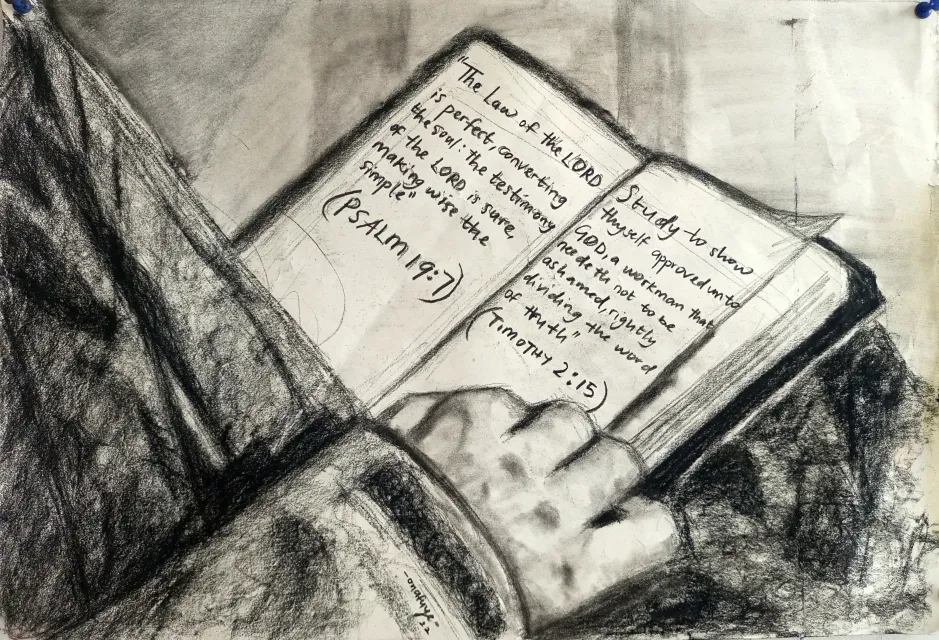 "The Law of the LORD
is perfect, converting
the soul: the testimony
of the LORD is sure,
making wise the
simple"
(PSALM 19:7)
Study to show
thyself approved unto
GOD, a workman that
needeth not to be
ashamed, rightly
dividing the word
of truth"
(TIMOTHY 2:15)